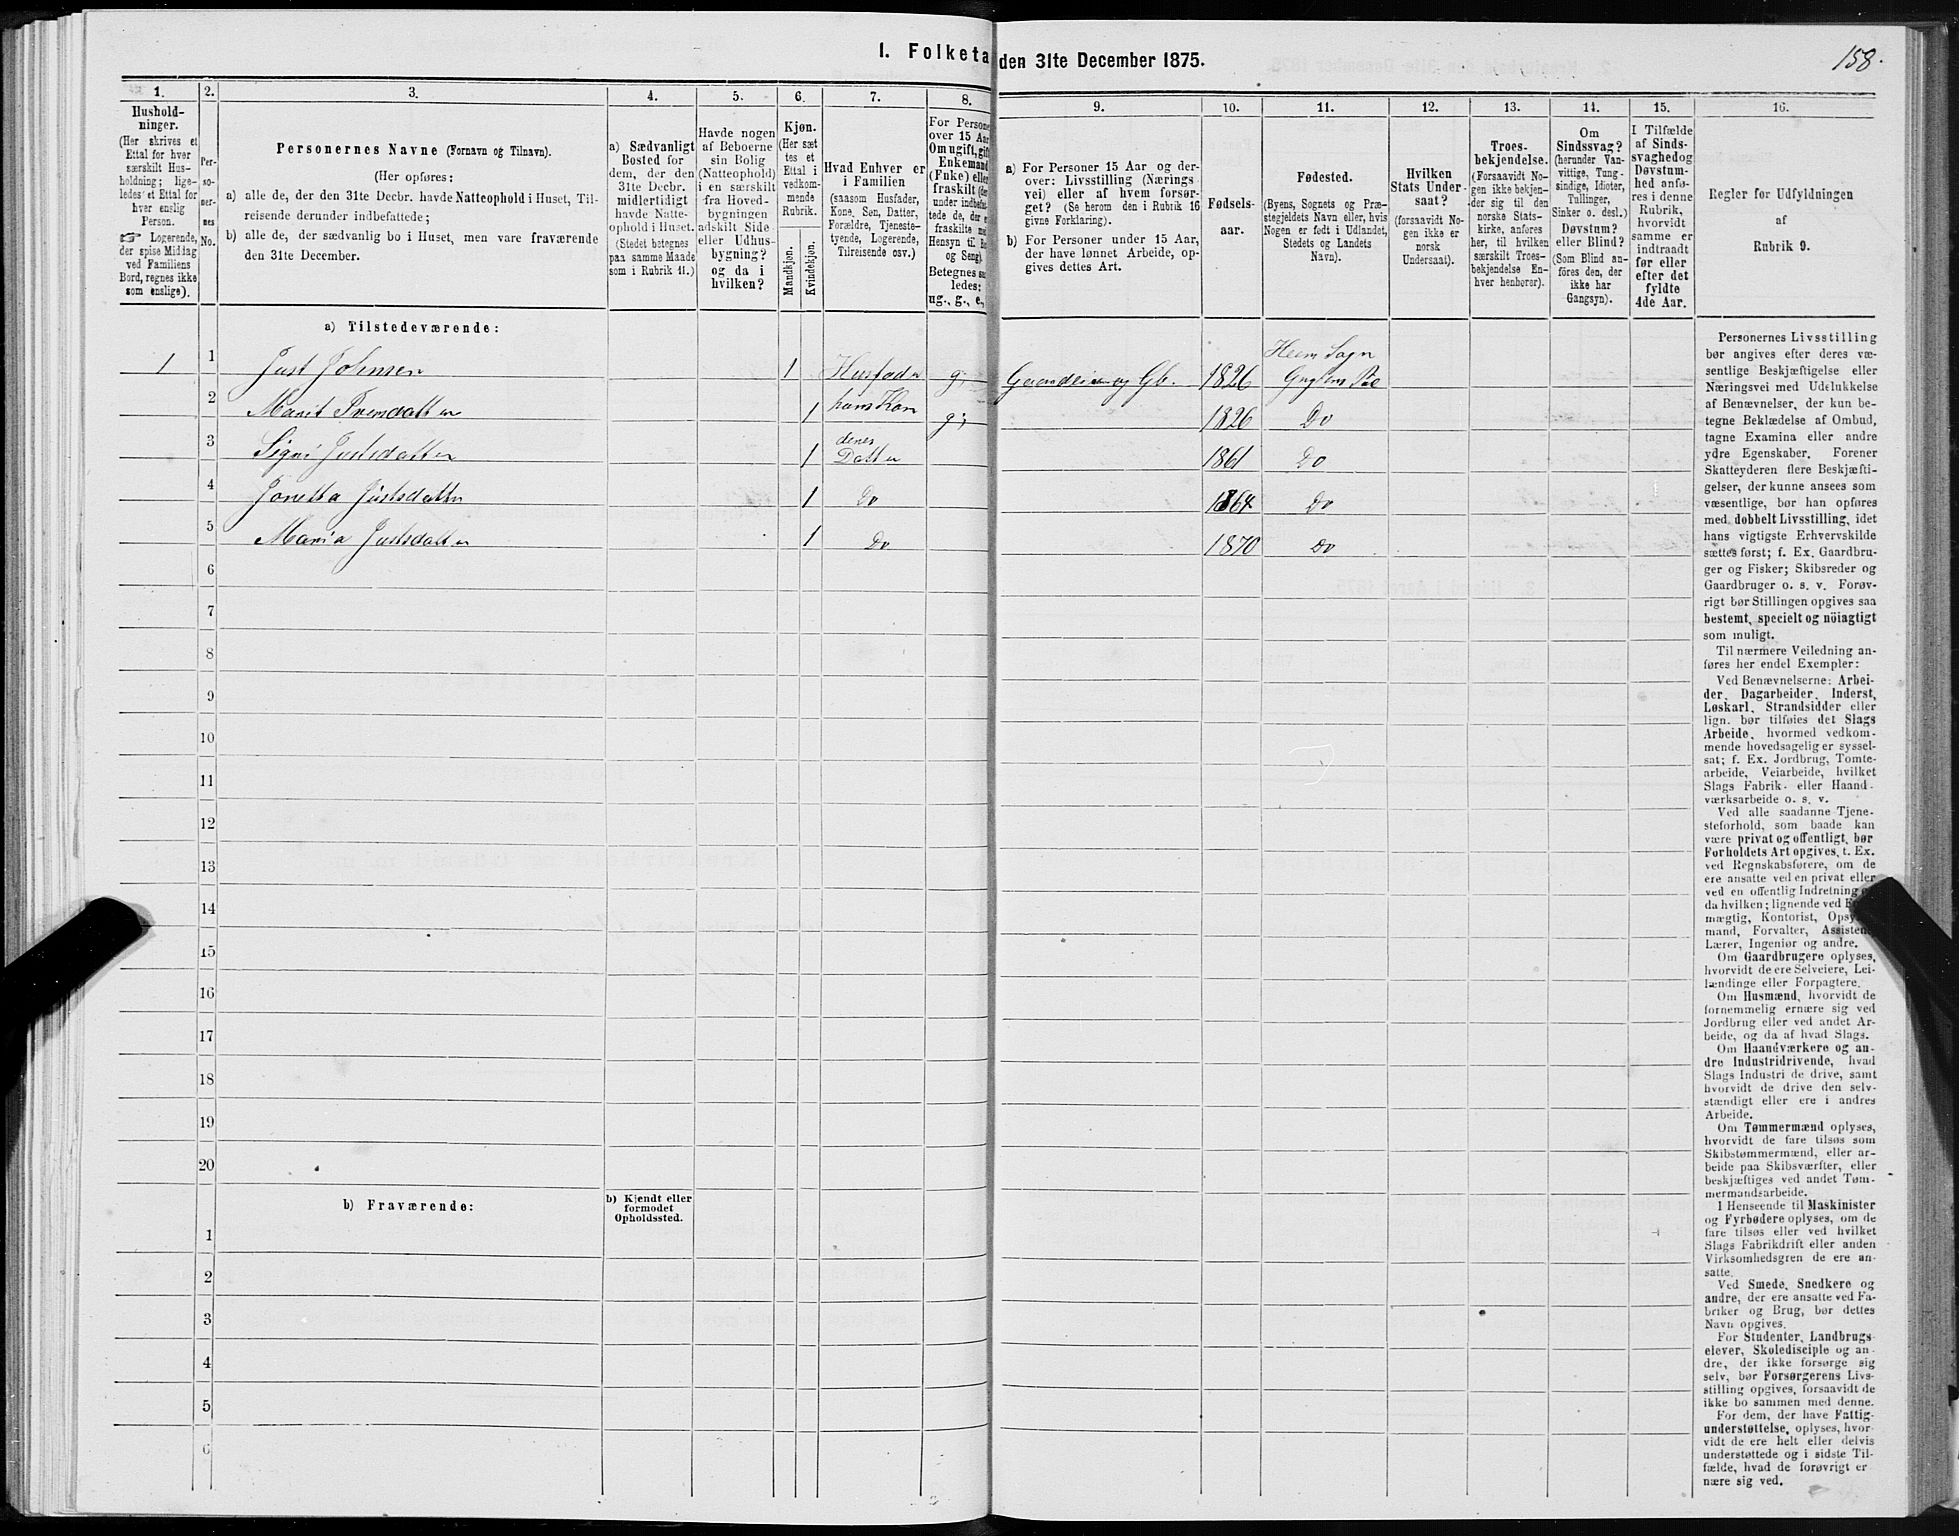 158.
I. Folketa den 31te December 1875.
1.
2.
3.
4.
5.
6.
7.
8.
9.
10.
11.
12.
13.
14.
15.
16.
Hushold-
ninger.
(Her skrives et
Ettal for hver
særskilt Hus-
holdning; lige-
ledes et Ettal for
hver enslig
Person.
☞ Logerende,
der spise Middag
ved Familiens
Bord, regnes ikke
som enslige).
Per-
so-
ner-
nes
No.
Personernes Navne (Fornavn og Tilnavn).
(Her opføres:
a) alle de, der den 31te Decbr. havde Natteophold i Huset, Til-
reisende derunder indbefattede;
b) alle de, der sædvanlig bo i Huset, men vare fraværende
den 31te December.
a) Sædvanligt
Bosted for
dem, der den
31te Decbr.
midlertidigt
havde Natte-
ophold i Huset.
(Stedet betegnes
paa samme Maade
som i Rubrik 11.)
Havde nogen
af Beboerne
sin Bolig
(Natteophold)
i en særskilt
fra Hoved-
bygningen
adskilt Side-
eller Udhus-
bygning?
og da i
hvilken?
Kjøn.
(Her sæt
tes et
Ettal i
vedkom-
mende
Rubrik.
Mandkjøn.
Kvindekjøn.
Hvad Enhver er
i Familien
(saasom Husfader,
Kone, Søn, Datter,
Forældre, Tjeneste-
tyende, Logerende,
Tilreisende osv.)
For Persone
over 15 Aar
Om ugift, gift
Enkemand
(Enke) elle
fraskilt
under indbefat-
tede de, der e
fraskilte
Hensyn til B
og Seng).
Betegnes
ledes:
ug., g., e.,
a) For Personer 15 Aar og der-
over: Livsstilling (Nærings
vei) eller af hvem forsør-
get? (Se herom den i Rubrik 16
givne Forklaring).
b) For Personer under 15 Aar,
der have lønnet Arbeide, op-
gives dettes Art.
Fødsels-
aar.
Fødested.
(Byens, Sognets og Præ-
stegjeldets Navn eller, hvis
Nogen er født i Udlandet,
Stedets og Landets
Navn).
Hvilken
Stats Under-
saat?
(forsaavidt No-
gen ikke er
norsk
Undersaat).
Troes-
bekjendelse.
(Forsaavidt No-
gen ikke bekjen-
der sig til den
norske Stats-
kirke, anføres
her, til hvilken
særskilt Troes-
bekjendelse En-
hver henhører).
Om
Sindssvag?
(herunder Van-
vittige, Tung-
sindige, Idioter,
Tullinger,
Sinker o. desl.)
Døvstum?
eller Blind?
(Som Blind an-
føres den, der
ikke har
Gangsyn).
I Tilfælde
af Sinds-
svaghed og
Døvstum-
hed anfø-
res i denne
Rubrik,
hvorvidt
samme er
indtraadt
før eller
efter det
fyldte
4de Aar.
Regler for Udfyldningen
af
Rubrik 9.
a) Tilstedeværende:
1 1 Just Johnsen 1 g. 1826 Heem Sogn
2 1 hans Kon g; 1826 Do
3 Signi Justsdatter 1 denes Datter 1861 Do
4 Jonetta Justsdatter 1 Do 1864 Do
5 Maria Justsdatter 1 Do 1870 Do
6
7
8
9
10
11
12
13
14
15
16
17
18
19
20
b) Fraværende:
b) Kjendt eller
formodet
Opholdssted.
1
2
3
4
5
6
Personernes Livsstilling
bør angives efter deres væ-
sentlige Beskjæftigelse eller
Næringsvei med Udelukkelse
af Benævnelser, der kun be-
tegne Beklædelse af Ombud,
tagne Examina eller andre
ydre Egenskaber. Forener
Skatteyderen flere Beskjæfti-
gelser, der kunne ansees som
væsentlige, bør han opføres
med dobbelt Livsstilling, idet
hans vigtigste Erhvervskilde
sættes først; f. Ex. Gaardbru-
ger og Fisker; Skibsreder og
Gaardbruger o. s. v. Forøv-
rigt bør Stillingen opgives saa
bestemt, specielt og nöiagtigt
som muligt.
Til nærmere Veiledning an-
føres her endel Exempler:
Ved Benævnelserne: Arbei-
der, Dagarbeider, Inderst,
Løskarl, Strandsidder eller
lign. bør tilføies det Slags
Arbeide, hvormed vedkom-
mende hovedsagelig er syssel-
sat; f. Ex. Jordbrug, Tomte-
arbeide, Veiarbeide, hvilket
Slags Fabrik- eller Haand-
værksarbeide o. s. v.
Ved alle saadanne Tjene-
steforhold, som baade kan
være privat og offentligt, bør
Forholdets Art opgives, t. Ex.
ved Regnskabsførere, om de
ere ansatte ved en privat eller
ved en offentlig Indretning
da hvilken; lignende ved
mægtig, Kontorist, Opsy
mand, Forvalter, Assistent,
Lærer, Ingeniør og andre.
Om Gaardbrugere oplyses,
hvorvidt de ere Selveiere, Lei-
lændinge eller Forpagtere.
Om Husmænd, hvorvidt de
fornemmelig ernære sig ved
Jordbrug eller ved andet Ar-
beide, og da af hvad Slags.
Om Haandværkere og an-
dre Industridrivende, hvad
Slags Industri de drive, samt
hvorvidt de drive den selv-
stændigt eller ere i andres
Arbeide.
Om Tømmermænd oplyses,
hvorvidt de fare tilsøs som
Skibstømmermænd, eller ar-
beide paa Skibsværfter, eller
beskjæftiges ved andet Tøm-
mermandsarbeide.
I Henseende til Maskinister
og Fyrbødere oplyses, om de
fare tilsøs eller ved hvilket
Slags Fabrikdrift eller anden
Virksomhedsgren de ere an-
satte.
Ved Smede, Snedkere og
andre, der ere ansatte ved Fa-
briker og Brug, bør dettes
Navn opgives.
For Studenter, Landbrugs-
elever, Skoledisciple og an-
dre, der ikke forsørge sig
selv, bør Forsørgerens Livs-
stilling opgives, forsaavidt de
ikke bo sammen med denne.
For dem, der have Fattig-
understøttelse, oplyses, hvor-
vidt de ere helt eller delvis
understøttede og i sidste Til-
fælde, hvad de forøvrigt er
nære sig ved.